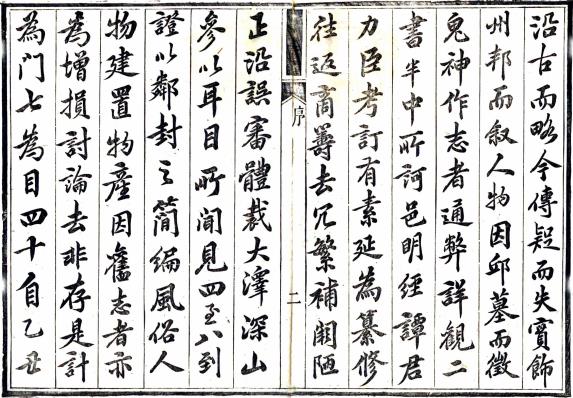 沿古而略今傳疑而失實飾
州邦而敘人物因邱墓而徵
鬼神作志者通弊詳觀二
書半中所訶邑明經譚君
力臣考訂有素延為纂修
往返商籌去冗繁補闕陋
序
二
正沿誤審體裁大澤深山
參以耳目所聞見四至八到
證以鄰封之簡編風俗人
物建置物產因舊志者亦
為增損討論去非存是計
為門七為目四十自乙丑